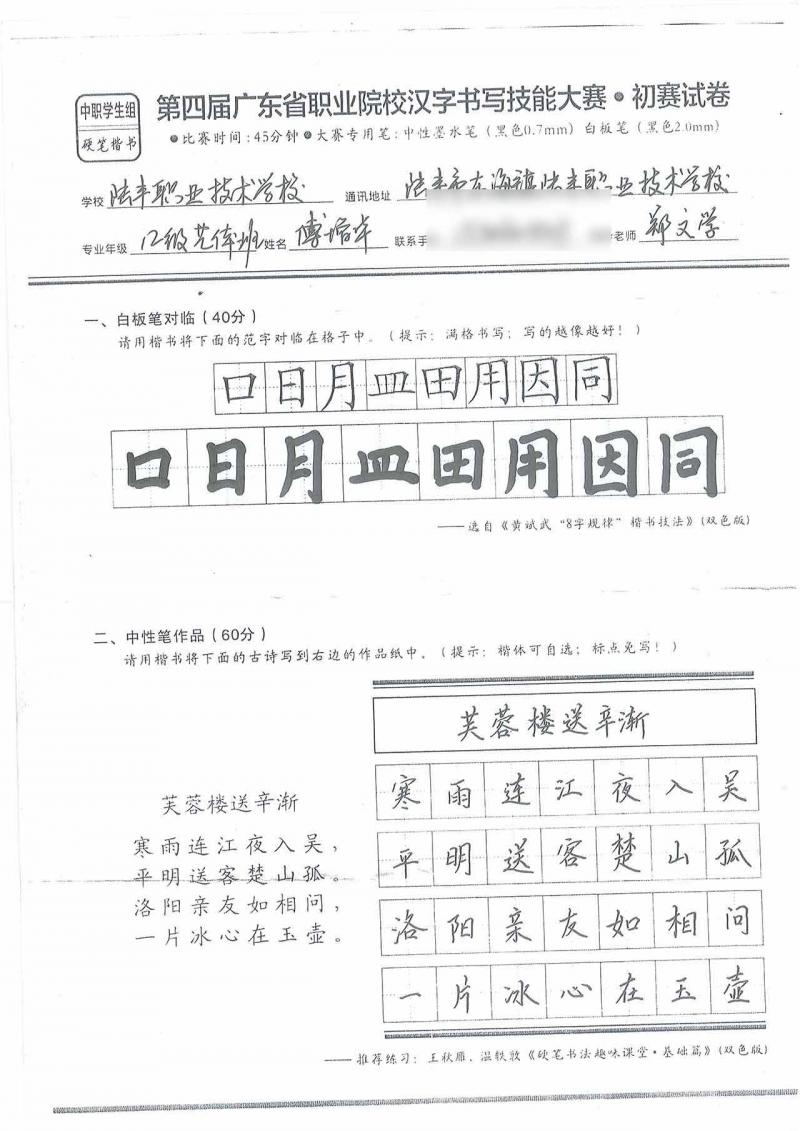 中职学生组
硬笔楷书
第四届广东省职业院校汉字书写技能大赛·初赛试卷
●比赛时间:45分钟●大赛专用笔:中性墨水笔(黑色0.7mm)白板笔(黑色2.0mm)
学校 陆丰职业技术学校 通讯地址 陆丰市东海镇陆丰职业技术学校
专业年级 12级 班 姓名 傅 联系手 老师 郑文学
一、白板笔对临(40分)
请用楷书将下面的范字对临在格子中。(提示:满格书写;写的越像越好!)
口日月皿田用因同
口日月皿田用因同
——选自《黄斌武“8字规律”楷书技法》(双色版)
二、中性笔作品(60分)
请用楷书将下面的古诗写到右边的作品纸中。(提示:楷体可自选;标点免写!)
芙蓉楼送辛渐
寒雨连江夜入吴,
平明送客楚山孤。
洛阳亲友如相问,
一片冰心在玉壶。
芙蓉楼送辛渐
寒雨连江夜入吴
平明送客楚山孤
洛阳亲友如相问
一片冰心在玉壶
——推荐练习:王秋雁、温轶敦《硬笔书法趣味课堂·基础篇》(双色版)